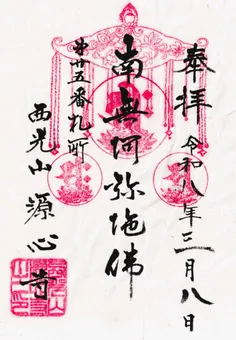 奉拝
令和八年三月八日
南無阿弥陀佛
第廿五番札所
西光山 源心寺